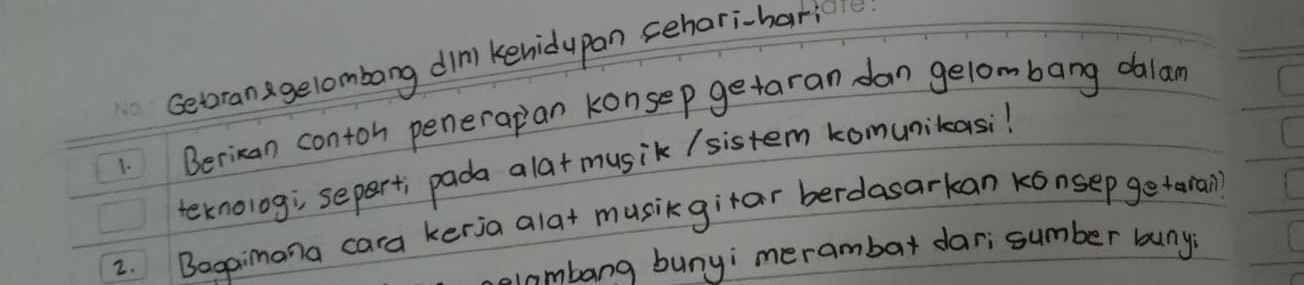 No: Getaran & gelombang dlm kehidupan sehari-hari Date:
1. Berikan contoh penerapan konsep getaran dan gelombang dalam
teknologi, seperti pada alat musik / sistem komunikasi!
2. Bagaimana cara kerja alat musik gitar berdasarkan konsep getaran?
gelombang bunyi merambat dari sumber bunyi